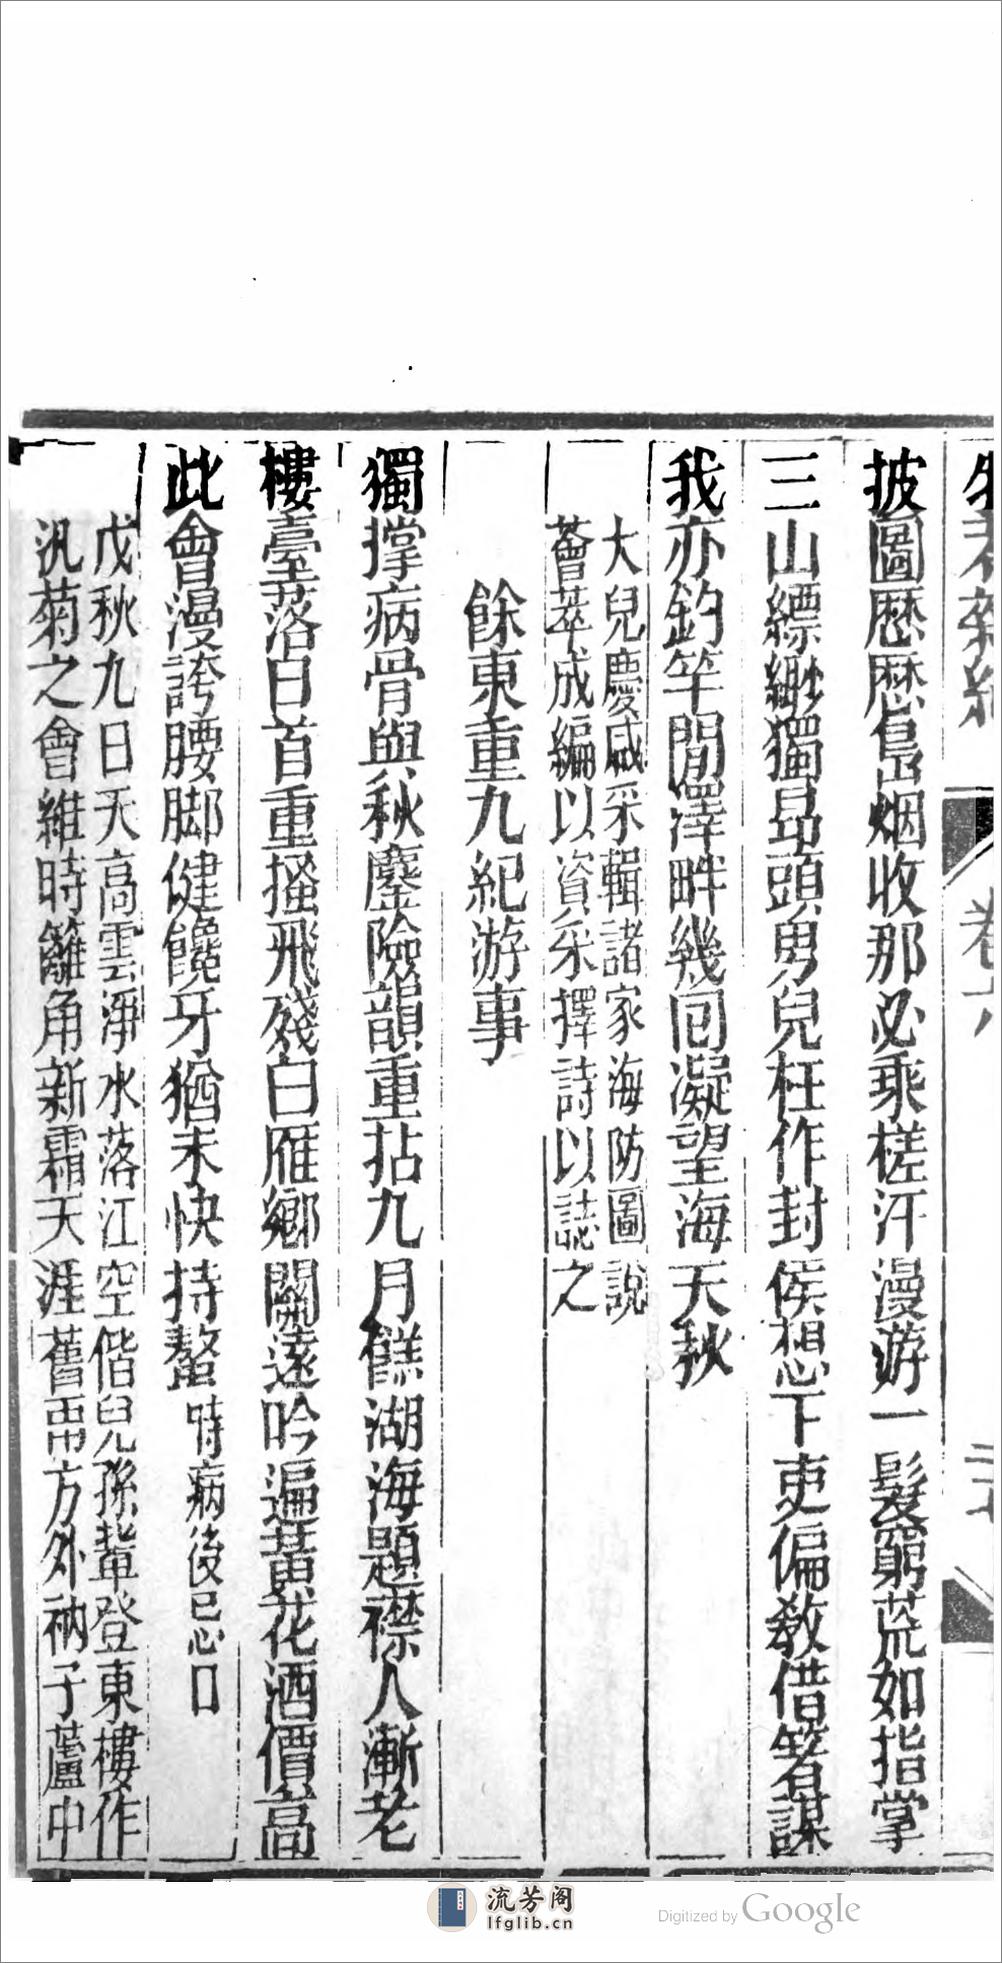 披圖歷歷島烟收那必乘槎汗漫游一髮窮荒如指掌
三山縹緲獨昂頭男兒枉作封侯想下吏偏教借箸謀
我亦釣竿閒澤畔幾囘凝望海天秋
大兒慶咸采輯諸家海防圖說
薈萃成編以資采擇詩以誌之
餘東重九紀游事
獨撑病骨與秋鏖險韻重拈九月餻湖海題襟人漸老
樓臺落日首重搔飛殘白雁鄉關遠吟遍黃花酒價高
此會漫誇腰脚健饞牙猶未快持螯時病後忌口
戊秋九日天高雲淨水落江空偕兒孫輩登東樓作
汎菊之會維時籬角新霜天涯舊雨方外衲子蘆中
卷六
流芳阁
lfglib.cn
Digitized by Google